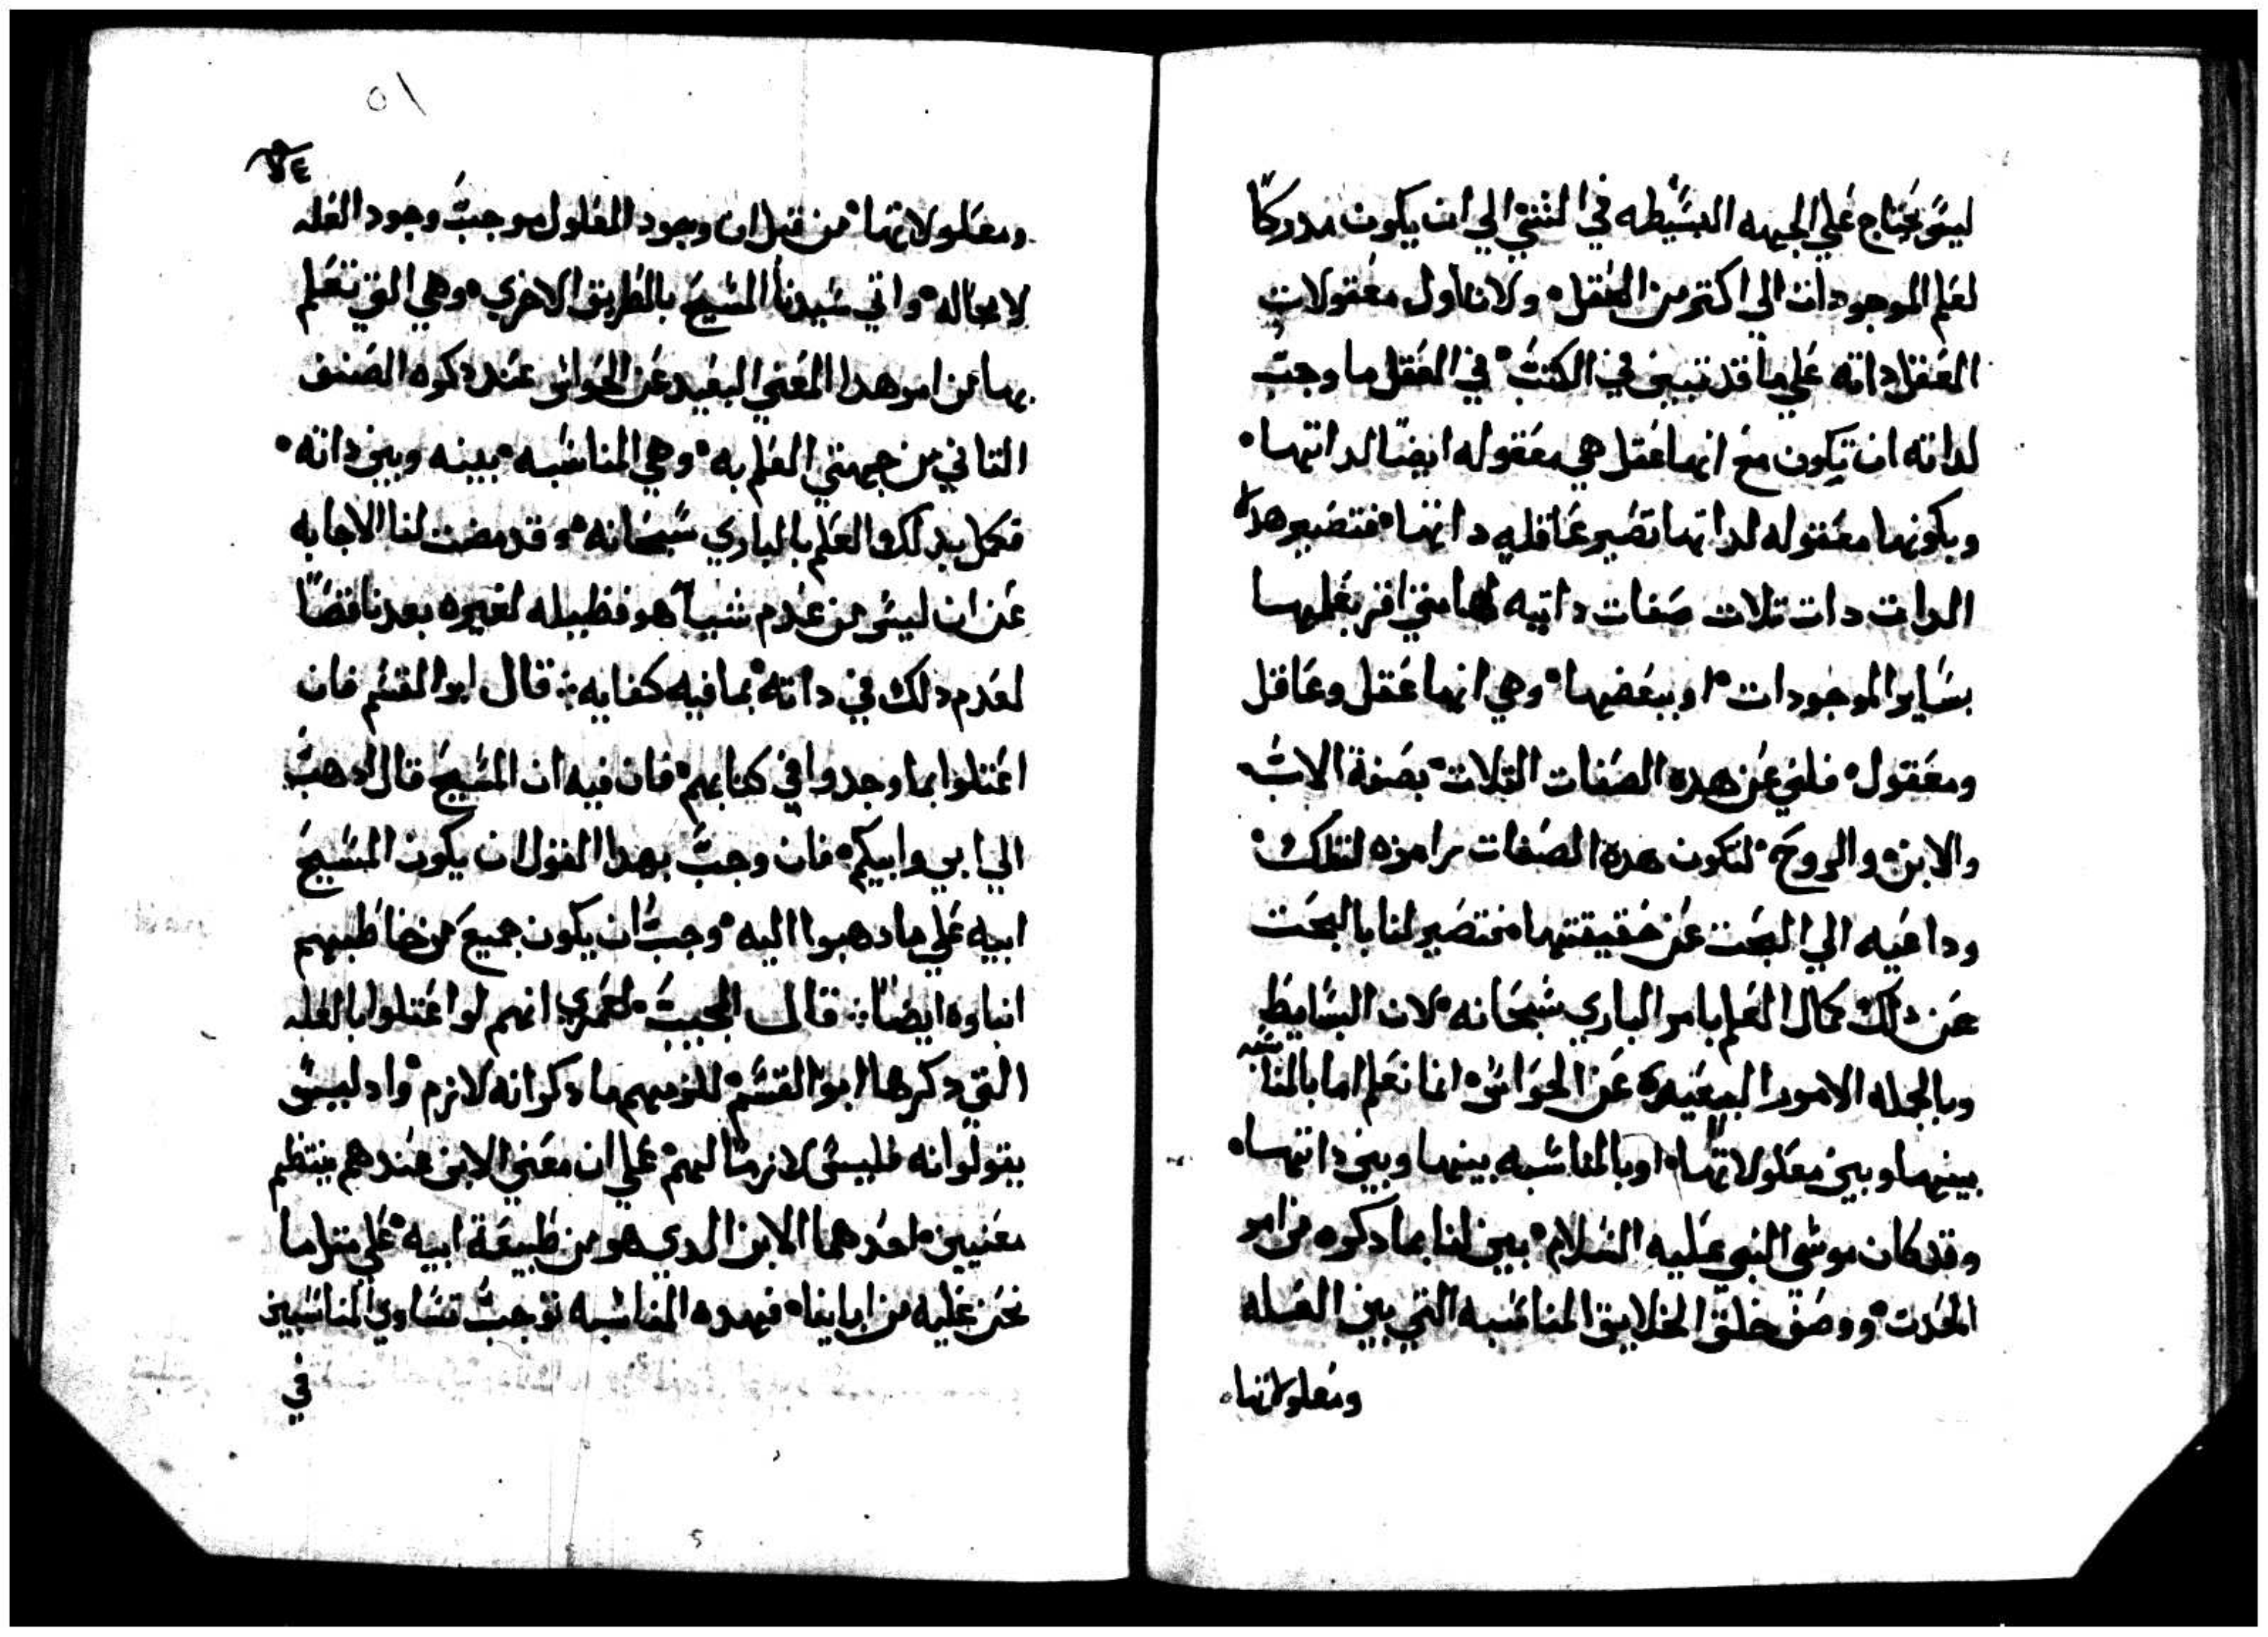 ليس يحتاج علي الجهه البسيطه في الشي الي ان يكون مدركا
لعلم الموجودات الي اكتر من العقل ولان اول معقولات
العقل داته علي ما قد تبين في الكتب في العقل ما وجب
لداته ان تكون مع انها عقل هي معقوله ايضا لداتها
وبكونها معقوله لداتها تصير عاقله داتها فتصير هده
الدات دات تلات صفات داتيه لها متي اقر بعلمها
بساير الموجودات او ببعضها وهي انها عقل وعاقل
ومعقول فلغي عن هده الصفات التلات بصفة الاب
والابن والروح لتكون هده الصفات رامزه لتلك
وداعيه الي البحت عن حقيقتها فتصير لنا بالبحت
عن دلك كمال العلم بامر الباري سبحانه لان البسايط
وبالجمله الامور البعيده عن الحواس انما نعلم اما بالمناسبه
بينها وبين معلولاتها او بالمناسبه بينها وبين داتها
وقد كان موسي النبي عليه السلام بين لنا بما دكره من امر
الحدت ووصف خلق الخلايق المناسبه التي بين العله
ومعلولاتها
٥١
٥٤
ومعلولاتها من قبل ان وجود المعلول موجب وجود العله
لا محاله واتي سيدنا المسيح بالطريق الاخري وهي التي تعلم
بها من امر هدا المعني البعيد عن الحواس عند دكره الصنف
التاني من جهتي العلم به وهي المناسبه بينه وبين داته
فكمل بدلك العلم بالباري سبحانه وقد مضت لنا الاجابه
عن ان ليس من عدم شيا هو فظيله لغيره يعد ناقصا
لعدم دلك في داته بما فيه كفايه قال ابو القسم فان
اعتلوا بما وجدوا في كتابهم فان فيه ان المسيح قال ادهب
الي ابي وابيكم فان وجب بهدا القول ان يكون المسيح
ابيه علي ما دهبوا اليه وجب ان يكون جميع من خاطبهم
ابناوه ايضا قال المجيب لعمري انهم لو اعتلوا بالعله
التي دكرها ابو القسم للزمهم ما دكر انه لازم واد ليس
يقولوانه فليس لازما لهم علي ان معني الابن عندهم ينتظم
معنيين احدهما الابن الدي هو من طبيعة ابيه علي متل ما
نحن عليه من ابايناه فهده المناسبه توجب تساوي المناسبين
في